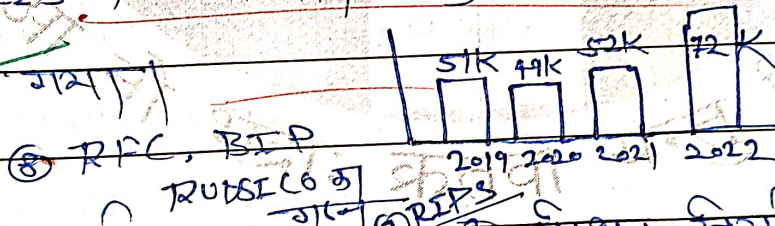 51K 49K 52K 72K
गया।
2019 2020 2021 2022
⑧ RFC, BIP
RUDSICO का
गठन
RIPS